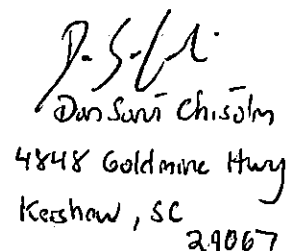 Chisolm
4848 Goldmine Hwy
Kershaw, SC
29067